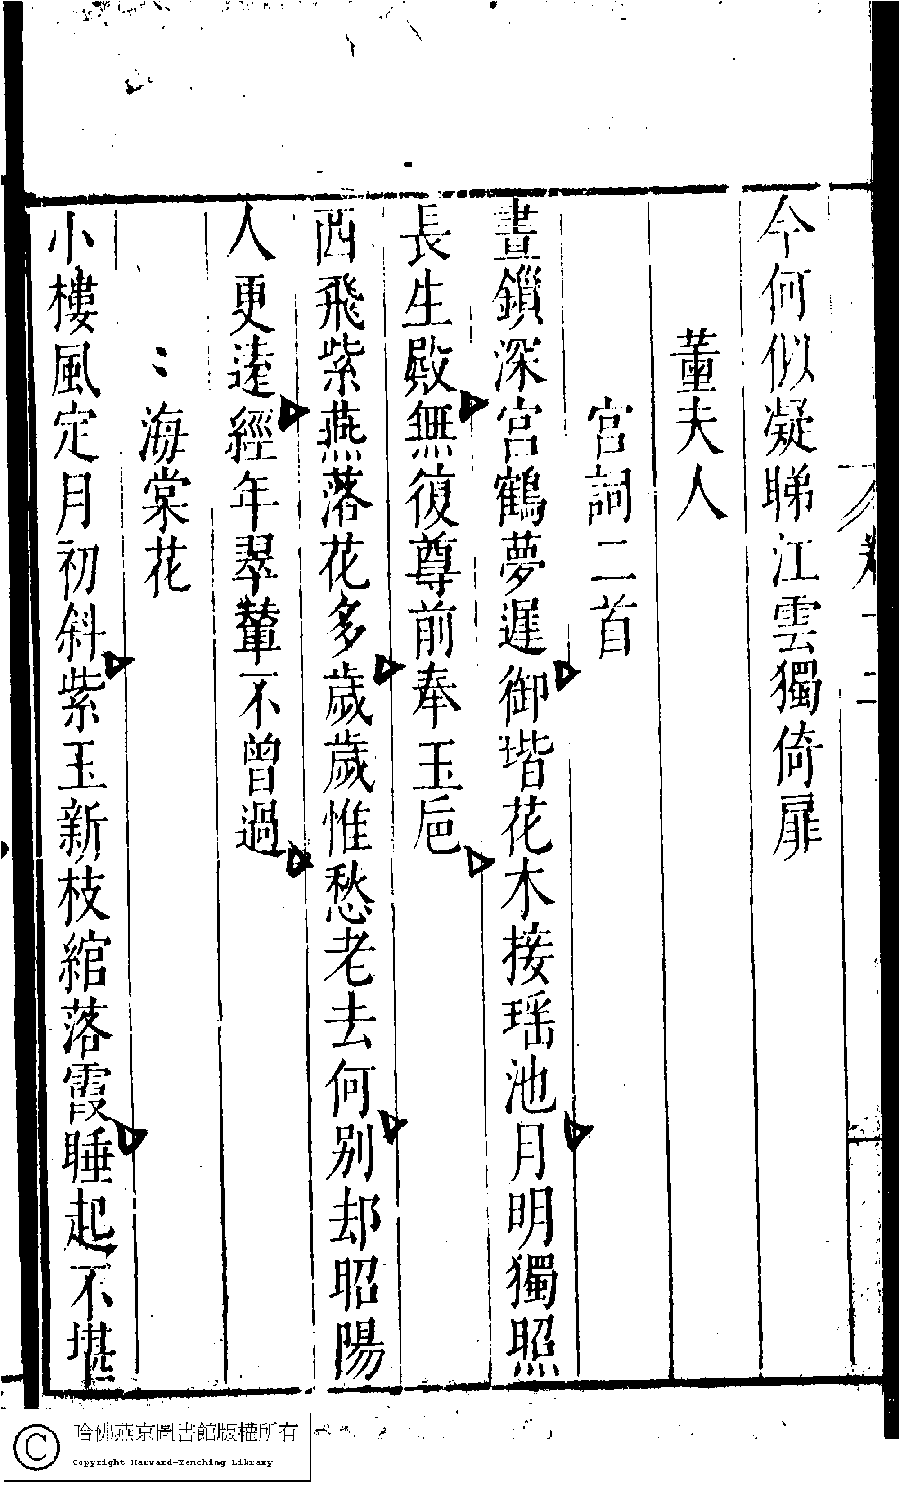 卷十二
今何似凝睇江雲獨倚扉
董夫人
宮詞二首
晝鎖深宮鶴夢遲御堦花木接瑶池月明獨照
長生殿無復尊前奉玉巵
西飛紫燕落花多歲歲惟愁老去何别却昭陽
人更遠經年翠輦不曾過
海棠花
小樓風定月初斜紫玉新枝綰落霞睡起不堪
哈佛燕京圖書館版權所有
Copyright Harvard-Yenching Library